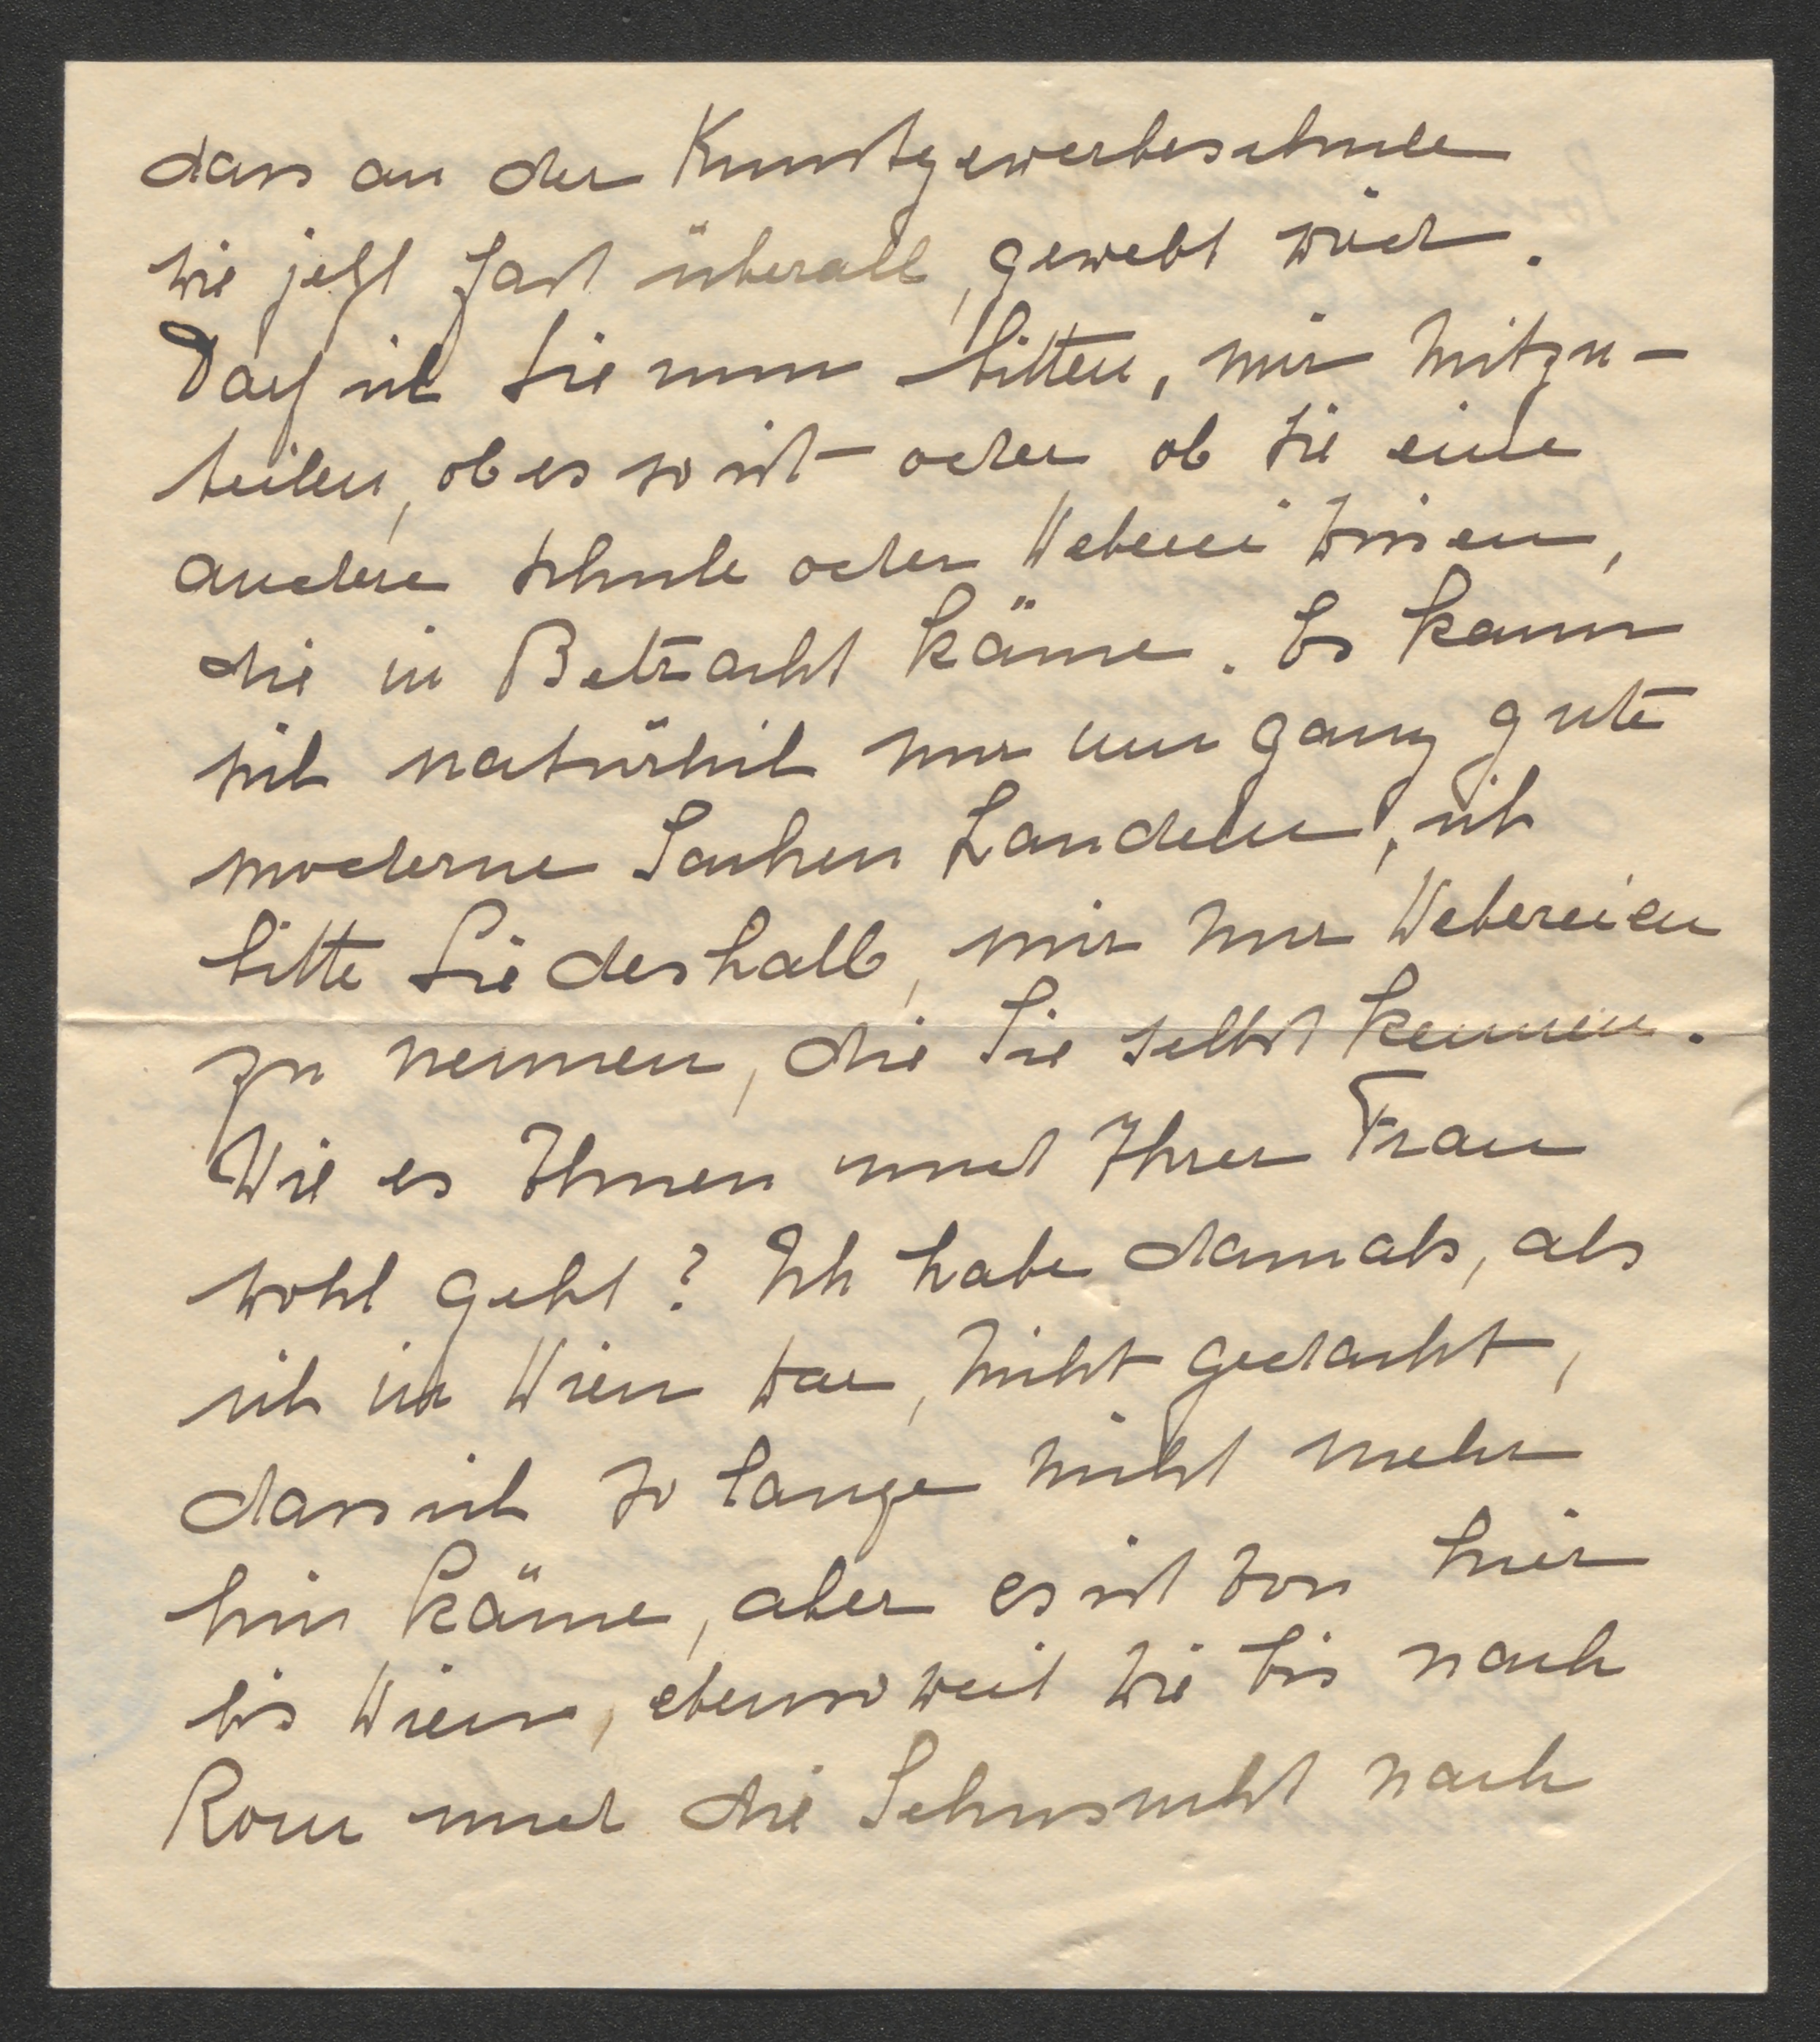 dass an der Kunstgewerbeschule
wie jetzt fast überall, gewebt wird.
Darf ich Sie nun bitten, mir mitzu-
teilen, ob es so ist oder ob Sie eine
andere Schule oder Weberei wissen,
die in Betracht käme. Es kann
sich natürlich nur um ganz gute
moderne Sachen handeln, ich
bitte Sie deshalb, mir nur Webereien
zu nennen, die Sie selbst kennen.
Wie es Ihnen und Ihrer Frau
wohl geht? Ich habe damals, als
ich in Wien war, nicht gedacht,
dass ich so lange nicht mehr
hin käme, aber es ist von hier
bis Wien, ebenso weit wie bis nach
Rom und die Sehnsucht nach